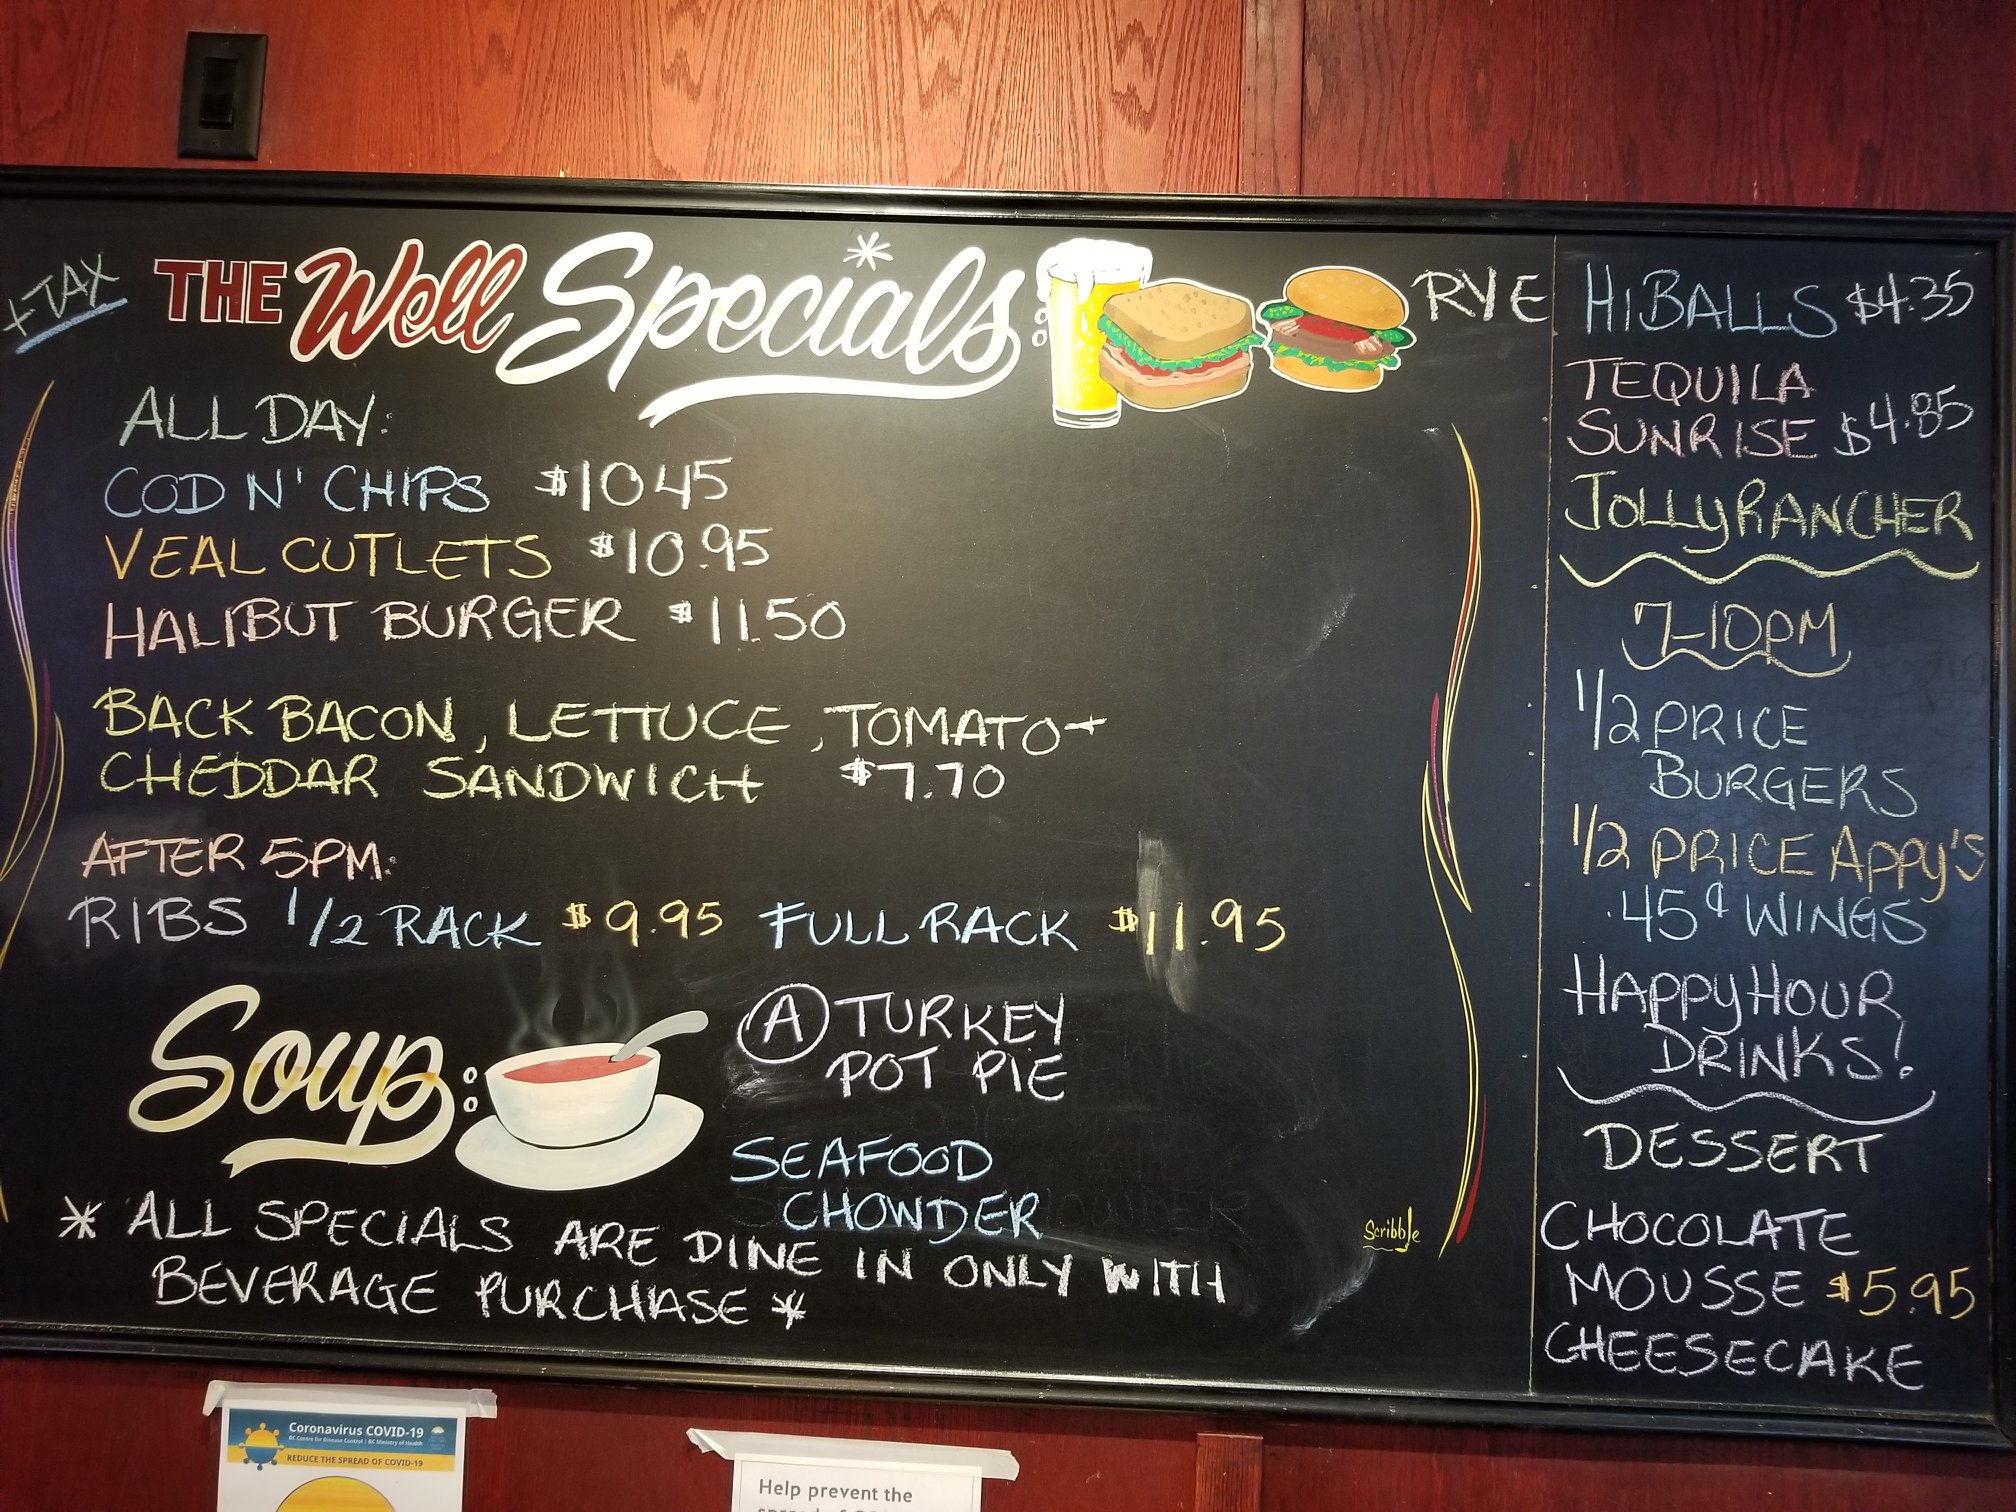 +TAX
THE Well Specials*:
ALL DAY:
COD N' CHIPS $10.45
VEAL CUTLETS $10.95
HALIBUT BURGER $11.50
BACK BACON, LETTUCE, TOMATO +
CHEDDAR SANDWICH $7.70
AFTER 5PM:
RIBS 1/2 RACK $9.95 FULL RACK $11.95
Soup:
A TURKEY
POT PIE
SEAFOOD
CHOWDER
* ALL SPECIALS ARE DINE IN ONLY WITH
BEVERAGE PURCHASE *
Scribble
RYE HIBALLS $4.35
TEQUILA
SUNRISE $4.85
JOLLY RANCHER
7-10PM
1/2 PRICE
BURGERS
1/2 PRICE APPY'S
.45¢ WINGS
HAPPY HOUR
DRINKS!
DESSERT
CHOCOLATE
MOUSSE $5.95
CHEESECAKE
Coronavirus COVID-19
BC Centre for Disease Control | BC Ministry of Health
REDUCE THE SPREAD OF COVID-19
Help prevent the